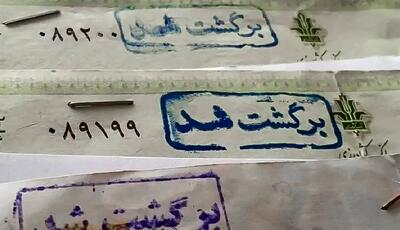 برگشت شد ۰۸۹۲۰۰
برگشت شد ۰۸۹۱۹۹
برگشت شد